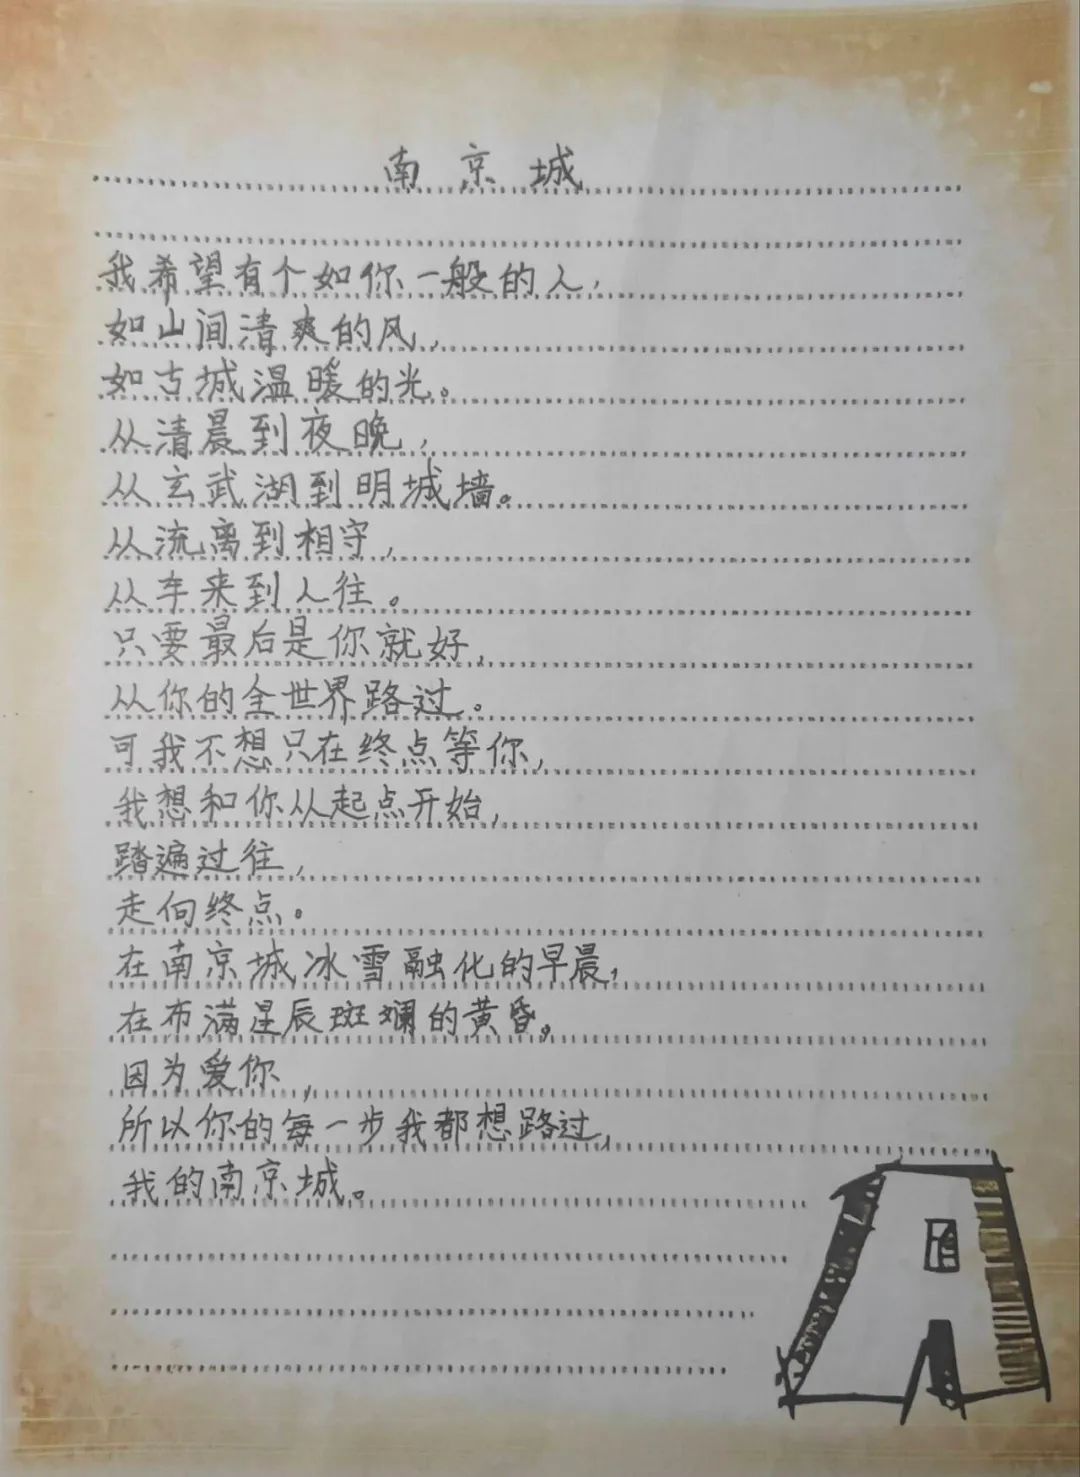 南京城
我希望有个如你一般的人,
如山间清爽的风,
如古城温暖的光。
从清晨到夜晚,
从玄武湖到明城墙。
从流离到相守,
从车来到人往。
只要最后是你就好,
从你的全世界路过。
可我不想只在终点等你,
我想和你从起点开始,
踏遍过往,
走向终点。
在南京城冰雪融化的早晨,
在布满星辰斑斓的黄昏。
因为爱你,
所以你的每一步我都想路过,
我的南京城。